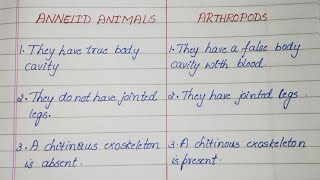 ANNELID ANIMALS
ARTHROPODS
1. They have true body
cavity
1. They have a false body
cavity with blood.
2. They do not have jointed
legs.
2. They have jointed legs
3. A chitinous exoskeleton
is absent.
3. A chitinous exoskeleton
is present.